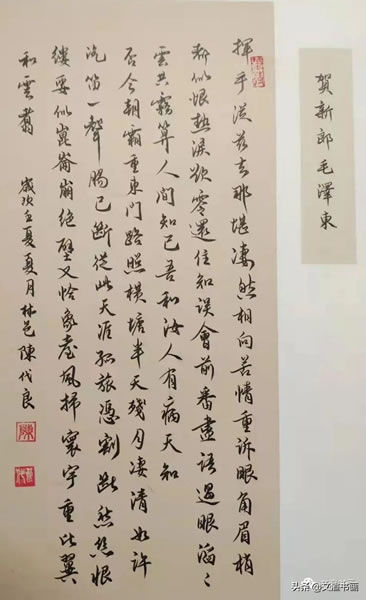 賀新郎毛澤東
揮手從茲去那堪凄然相向苦情重訴眼角眉梢
都似恨熱淚欲零還住知誤會前番書語過眼滔々
雲共霧算人間知己吾和汝人有病天知
否今朝霜重東門路照橫塘半天殘月凄清如許
汽笛一聲腸已斷從此天涯孤旅憑割斷愁絲恨
縷要似崑崙崩絕壁又恰像臺風掃寰宇重比翼
和雲翥 歲次壬寅夏月林邑陳代良